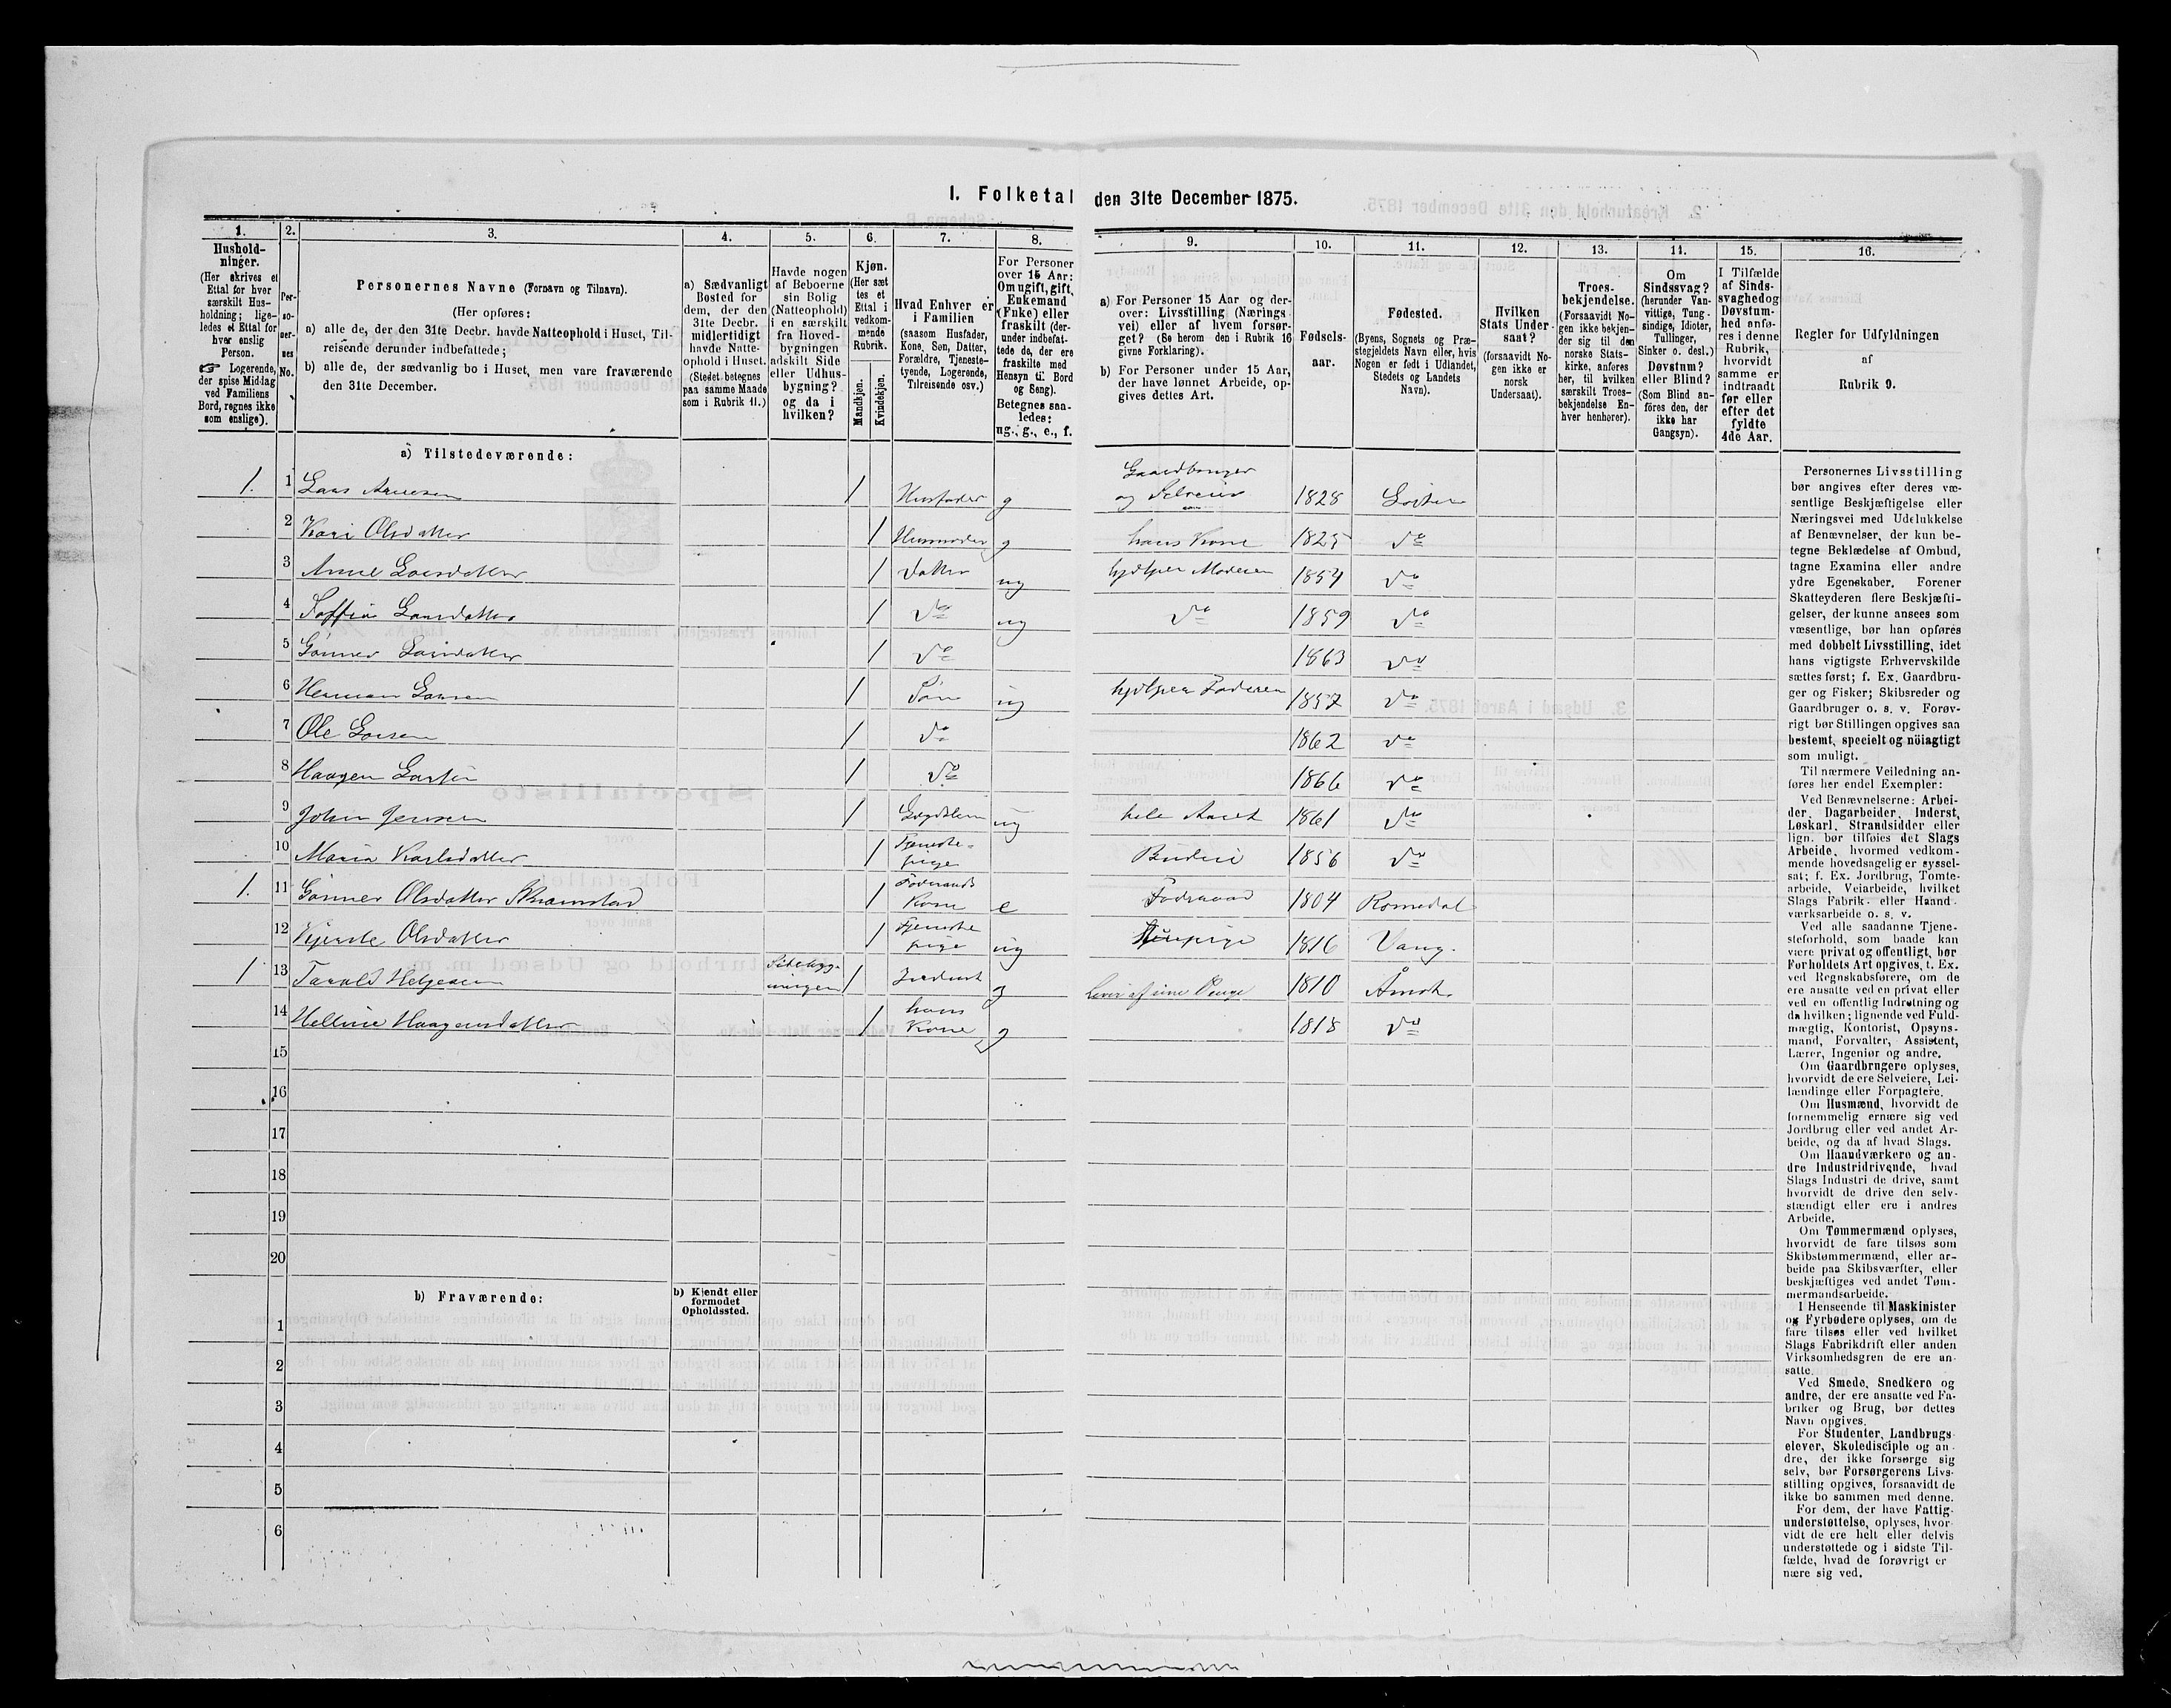 I. Folketal den 31te December 1875.
1. 2. 3. 4. 5. 6. 7. 8. 9. 10. 11. 12. 13. 14. 15. 16.
Hushold-
ninger.
(Her skrives et
Ettal for hver
særskilt Hus-
holdning; lige-
ledes et Ettal for
hver enslig
Person.
☞ Logerende,
der spise Middag
ved Familiens
Bord, regnes ikke
som enslige).
Per-
so-
ner-
nes
No.
Personernes Navne (Fornavn og Tilnavn).
(Her opføres:
a) alle de, der den 31te Decbr. havde Natteophold i Huset, Til-
reisende derunder indbefattede;
b) alle de, der sædvanlig bo i Huset, men vare fraværende
den 31te December.
a) Sædvanligt
Bosted for
dem, der den
31te Decbr.
midlertidigt
havde Natte-
ophold i Huset.
(Stedet betegnes
paa samme Maade
som i Rubrik 11.)
Havde nogen
af Beboerne
sin Bolig
(Natteophold)
i en særskilt
fra Hoved-
bygningen
adskilt Side
eller Udhus-
bygning?
og da i
hvilken?
Kjøn.
(Her sæt
tes et
Ettal i
vedkom-
mende
Rubrik.
Mandkjøn.
Kvindekjøn.
Hvad Enhver er
i Familien
(saasom Husfader,
Kone, Søn, Datter,
Forældre, Tjeneste-
tyende, Logerende,
Tilreisende osv.)
For Personer
over 15 Aar:
Om ugift, gift,
Enkemand
(Enke) eller
fraskilt (der-
under indbefat-
tede de, der ere
fraskilte med
Hensyn til Bord
og Seng).
Betegnes saa-
ledes:
ug., g., e., f.
a) For Personer 15 Aar og der-
over: Livsstilling (Nærings
vei) eller af hvem forsør-
get? (Se herom den i Rubrik 16
givne Forklaring).
b) For Personer under 15 Aar,
der have lønnet Arbeide, op-
gives dettes Art.
Fødsels-
aar.
Fødested.
(Byens, Sognets og Præ-
stegjeldets Navn eller, hvis
Nogen er født i Udlandet,
Stedets og Landets
Navn).
Hvilken
Stats Under-
saat?
(forsaavidt No-
gen ikke er
norsk
Undersaat).
Troes-
bekjendelse.
(Forsaavidt No-
gen ikke bekjen-
der sig til den
norske Stats-
kirke, anføres
her, til hvilken
særskilt Troes-
bekjendelse En-
hver henhører).
Om
Sindssvag?
(herunder Van-
vittige, Tung-
sindige, Idioter,
Tullinger,
Sinker o. desl.)
Døvstum?
eller Blind?
(Som Blind an-
føres den, der
ikke har
Gangsyn).
I Tilfælde
af Sinds-
svaghedog
Døvstum-
hed anfø-
res i denne
Rubrik,
hvorvidt
samme er
indtraadt
før eller
efter det
fyldte
4de Aar.
Regler for Udfyldningen
af
Rubrik 9.
a) Tilstedeværende:
1. 1 Lars Arnesen 1 Husfader g Gaardbruger og Selveier 1828 Løiten
2 Kari Olsdatter 1 Husmoder g hans Kone 1825 do
3 Anne Larsdatter 1 Datter ug hjelper Moderen 1854 do
4 Soffia Larsdatter 1 do ug do 1859 do
5 Gønner Larsdatter 1 do 1863 do
6 Herman Larsen 1 Søn ug hjelper Faderen 1857 do
7 Ole Larsen 1 do 1862 do
8 Haagen Larsen 1 do 1866 do
9 Johan Jensen 1 Lægdslem ug hele Aaret 1861 do
10 Maria Karlsdatter 1 Tjeneste-pige Budeie 1856 do
1. 11 Gønner Olsdatter 1 Foderaads Kone e Foderaad 1804 Romedal
12 Olsdatter 1 Tjeneste pige ug 1816 Vang.
1 13 Tarald Helgesen Sidebyg-ningen 1 Inderst g lever af sine Penge 1810 Åmot.
14 Helline Haagensdatter 1 hans Kone g 1818 do
15
16
17
18
19
20
b) Fraværende:
b) Kjendt eller
formodet
Opholdssted.
1
2
3
4
5
6
Personernes Livsstilling
bør angives efter deres væ-
sentlige Beskjæftigelse eller
Næringsvei med Udelukkelse
af Benævnelser, der kun be-
tegne Beklædelse af Ombud,
tagne Examina eller andre
ydre Egenskaber. Forener
Skatteyderen flere Beskjæfti-
gelser, der kunne ansees som
væsentlige, bør han opføres
med dobbelt Livsstilling, idet
hans vigtigste Erhvervskilde
sættes først; f. Ex. Gaardbru-
ger og Fisker; Skibsreder og
Gaardbruger o. s. v. Forøv-
rigt bør Stillingen opgives saa
bestemt, specielt og nöiagtigt
som muligt.
Til nærmere Veiledning an-
føres her endel Exempler:
Ved Benævnelserne: Arbei-
der, Dagarbeider, Inderst,
Løskarl, Strandsidder eller
lign. bør tilføies det Slags
Arbeide, hvormed vedkom-
mende hovedsagelig er syssel-
sat; f. Ex. Jordbrug, Tomte-
arbeide, Veiarbeide, hvilket
Slags Fabrik- eller Haand-
værksarbeide o. s. v.
Ved alle saadanne Tjene-
steforhold, som baade kan
være privat og offentligt, bør
Forholdets Art opgives, t. Ex.
ved Regnskabsførere, om de
ere ansatte ved en privat eller
ved en offentlig Indretning og
da hvilken; lignende ved Fuld-
mægtig, Kontorist, Opsyns-
mand, Forvalter, Assistent,
Lærer, Ingeniør og andre.
Om Gaardbrugere oplyses,
hvorvidt de ere Selveiere, Lei-
lændinge eller Forpagtere.
Om Husmænd, hvorvidt de
fornemmelig ernære sig ved
Jordbrug eller ved andet Ar-
beide, og da af hvad Slags.
Om Haandværkere og an-
dre Industridrivende, hvad
Slags Industri de drive, samt
hvorvidt de drive den selv-
stændigt eller ere i andres
Arbeide.
Om Tømmermænd oplyses,
hvorvidt de fare tilsøs som
Skibstømmermænd, eller ar-
beide paa Skibsværfter, eller
beskjæftiges ved andet Tøm-
mermandsarbeide.
I Henseende til Maskinister
og Fyrbødere oplyses, om de
fare tilsøs eller ved hvilket
Slags Fabrikdrift eller anden
Virksomhedsgren de ere an-
satte.
Ved Smede, Snedkere og
andre, der ere ansatte ved Fa-
briker og Brug, bør dettes
Navn opgives.
For Studenter, Landbrugs-
elever, Skoledisciple og an-
dre, der ikke forsørge sig
selv, bør Forsørgerens Livs-
stilling opgives, forsaavidt de
ikke bo sammen med denne.
For dem, der have Fattig-
understøttelse, oplyses, hvor-
vidt de ere helt eller delvis
understøttede og i sidste Til-
fælde, hvad de forøvrigt er
nære sig ved.